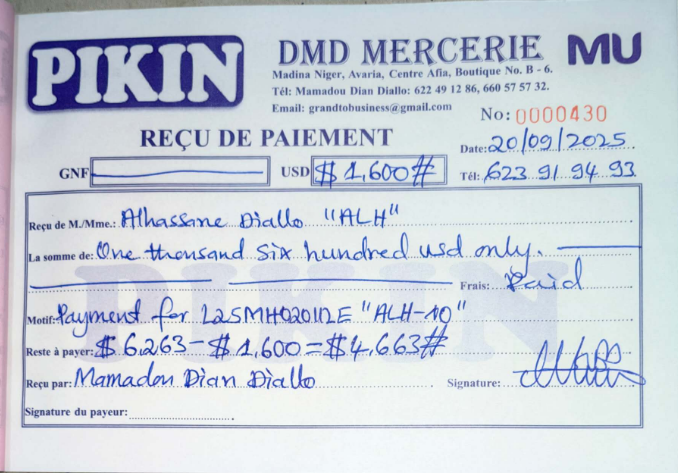 PIKIN
DMD MERCERIE MU
Madina Niger, Avaria, Centre Afia, Boutique No. B - 6.
Tél: Mamadou Dian Diallo: 622 49 12 86, 660 57 57 32.
Email: grandtobusiness@gmail.com
No: 0000430
REÇU DE PAIEMENT
Date: 20/09/2025
GNF USD $ 1,600#
Tél: 623 91 94 93
Reçu de M./Mme.: Alhassane Diallo "ALH"
La somme de: One thousand Six hundred usd only.
Frais: Paid
Motif: Payment for L25MH020112E "ALH-10"
Reste à payer: $ 6,263 - $ 1,600 = $4,663#
Reçu par: Mamadou Dian Diallo Signature:
Signature du payeur:
PIKIN